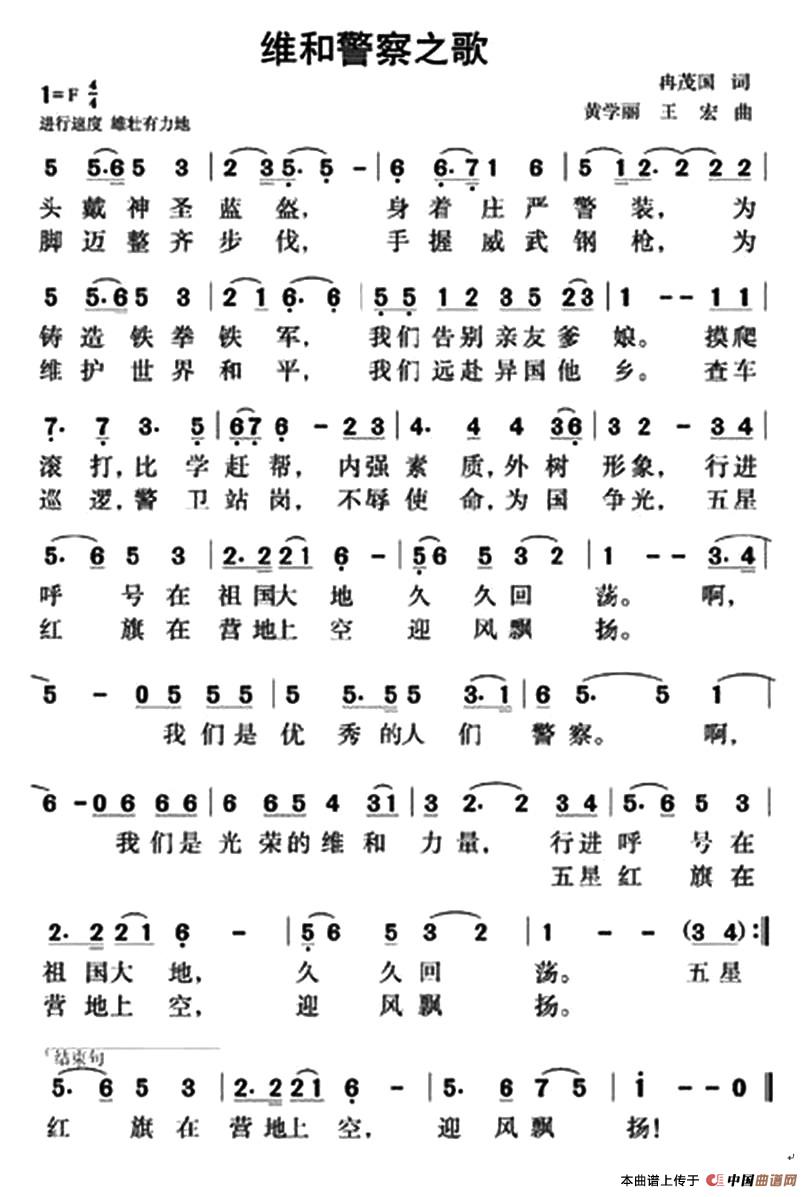 维和警察之歌
1=F 4/4
冉茂国 词
进行速度 雄壮有力地
黄学丽 王 宏 曲
5 5·6 5 3 | 2 3 5· 5 - | 6 6·7 1 6 | 5 1 2· 2 2 2 |
头戴神圣蓝盔, 身着庄严警装, 为
脚迈整齐步伐, 手握威武钢枪, 为
5 5·6 5 3 | 2 1 6· 6 | 5 5 1 2 3 5 2 3 | 1 - - 1 1 |
铸造铁拳铁军, 我们告别亲友爹娘。摸爬
维护世界和平, 我们远赴异国他乡。查车
7· 7 3· 5 | 6 7 6 - 2 3 | 4· 4 4 3 6 | 3 2 - 3 4 |
滚打,比学赶帮, 内强素质,外树形象, 行进
巡逻,警卫站岗, 不辱使命,为国争光, 五星
5· 6 5 3 | 2· 2 2 2 1 6 - | 5 6 5 3 2 | 1 - - 3·4 |
呼号在祖国大地 久久回荡。啊,
红旗在营地上空 迎风飘扬。
5 - 0 5 5 5 | 5 5· 5 5 3·1 | 6 5· 5 1 |
我们是优秀的人们警察。啊,
6 - 0 6 6 6 6 | 6 6 5 4 3 1 | 3 2· 2 3 4 | 5· 6 5 3 |
我们是光荣的维和力量, 行进呼号在
五星红旗在
2· 2 2 2 1 6 - | 5 6 5 3 2 | 1 - - (3 4) :‖
祖国大地, 久久回荡。 五星
营地上空, 迎风飘扬。
结束句
5· 6 5 3 | 2· 2 2 2 1 6 - | 5· 6 7 5 | i - - 0 ‖
红旗在营地上空, 迎风飘扬!
本曲谱上传于 中国曲谱网